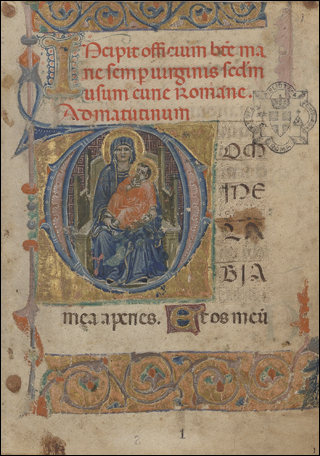 INcipit officium bte ma
rie semp uirginis scdm
usum curie Romane.
Ad matutinum
DOM
INE
LA
BIA
mea aperies. Et os meū
1